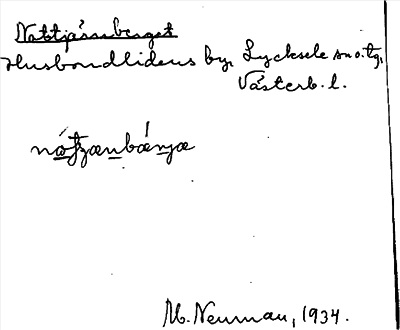 Nattjärnberget
Husbondlidens by, Lycksele sn o. tg,
Västerb. l.
nátjænbǽnjæ
M. Neuman, 1934.